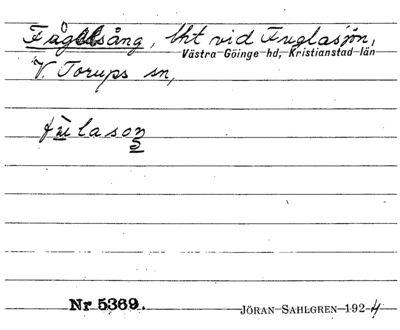 Fågelsång, lht vid Fuglasjön,
Västra Göinge hd, Kristianstad län
V. Torups sn,
fúlason
Nr 5369.
JÖRAN SAHLGREN 1924